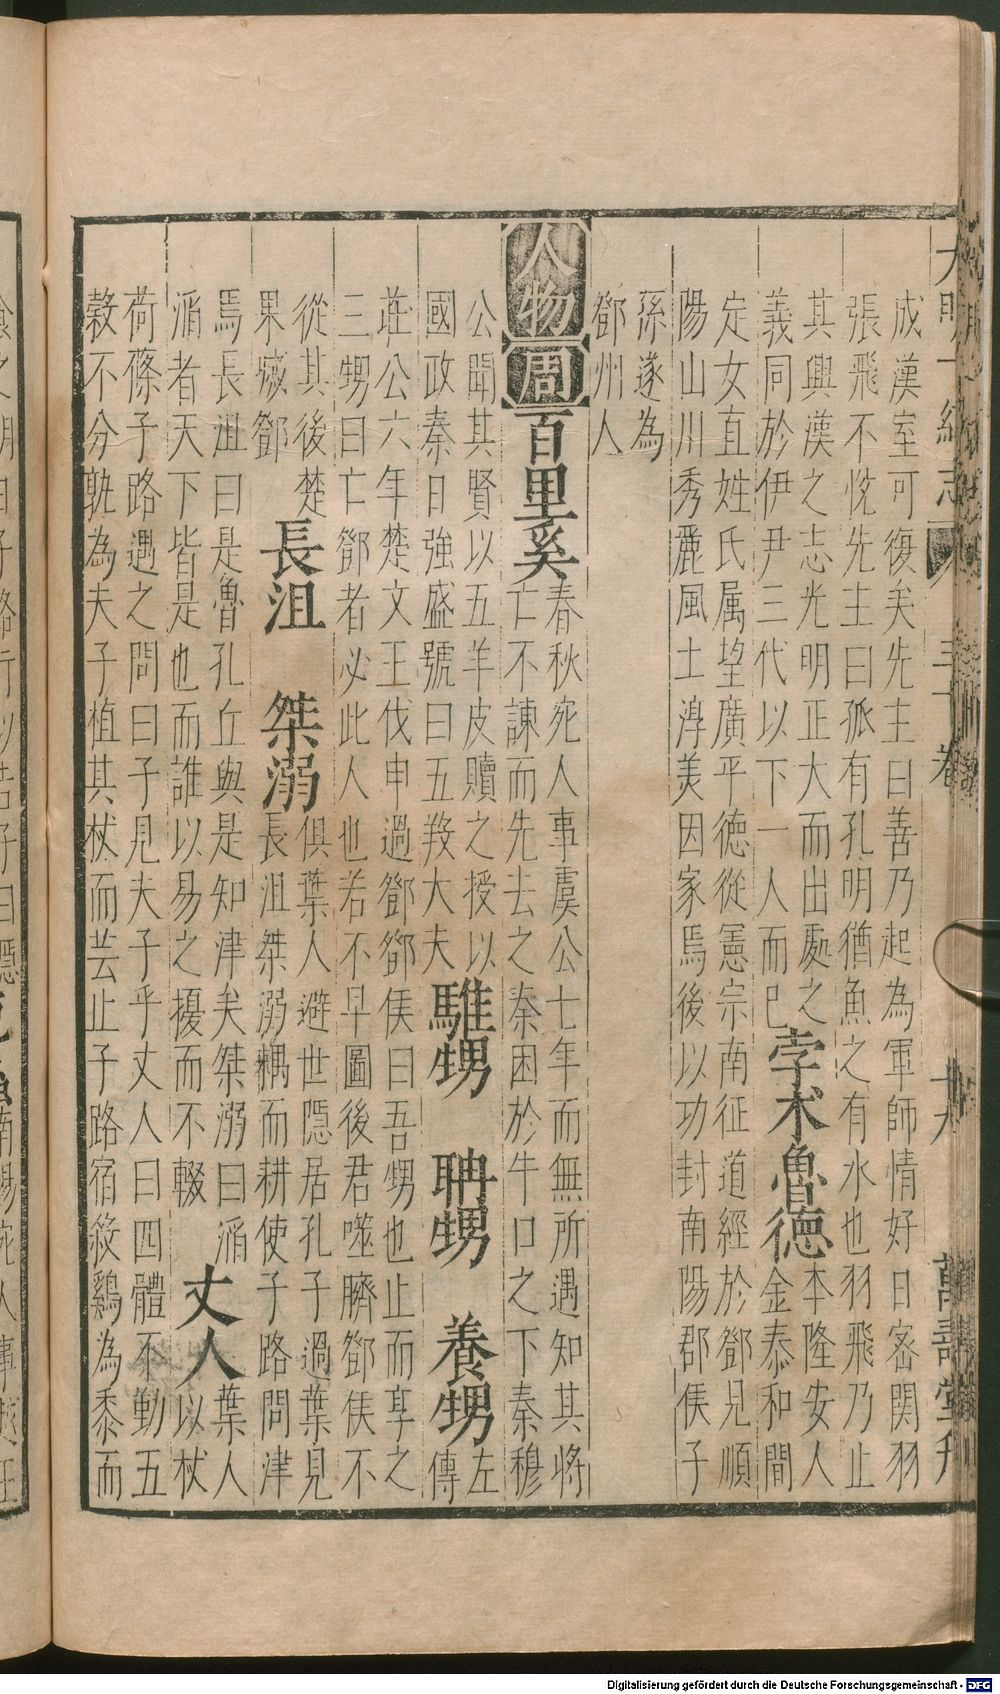 大明一統志 三十卷 十九 萬壽堂刊
成漢室可復矣先主曰善乃起為軍師情好日密関羽
張飛不悅先主曰孤有孔明猶魚之有水也羽飛乃止
其興漢之志光明正大而出處之
義同於伊尹三代以下一人而已
孛术魯德
本隆安人
金泰和間
定女直姓氏属望廣平德從憲宗南征道經於鄧見順
陽山川秀麗風土淳美因家焉後以功封南陽郡侯子
孫遂為
鄧州人
人物 周 百里奚
春秋宛人事虞公七年而無所遇知其將
亡不諫而先去之秦困於牛口之下秦穆
公聞其賢以五羊皮贖之授以
國政秦日強盛號曰五羖大夫
騅甥 聃甥 養甥
左
傳
莊公六年楚文王伐申過鄧鄧侯曰吾甥也止而享之
三甥曰亡鄧者必此人也若不早圖後君噬臍鄧侯不
從其後楚
果滅鄧
長沮 桀溺
俱葉人避世隱居孔子過葉見
長沮桀溺耦而耕使子路問津
焉長沮曰是魯孔丘與是知津矣桀溺曰滔
滔者天下皆是也而誰以易之擾而不輟
丈人
葉人
以杖
荷蓧子路遇之問曰子見夫子乎丈人曰四體不勤五
榖不分孰為夫子植其杖而芸止子路宿殺鷄為黍而
Digitalisierung gefördert durch die Deutsche Forschungsgemeinschaft - DFG